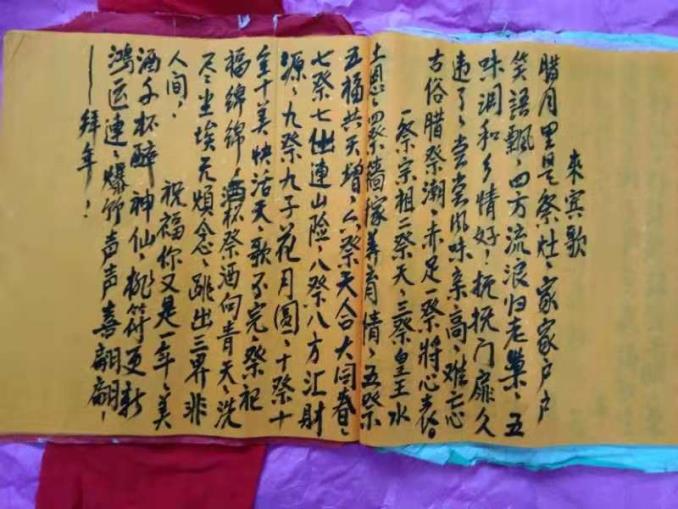 来宾歌
腊月里是祭灶、家家户户
笑语飘、四方流浪归老巢、五
味调和乡情好！抚抚门扉久
违了、尝尝风味亲高、难忘心
古俗腊祭潮、赤足一祭将心表
一祭宗祖二祭天、三祭皇王水
土恩、四祭养育情、五祭
五福共天增、六祭天合大同春、
七祭七仙连山险、八祭八方汇财
源、九祭九子花月圆、十祭十
全十美快活天、歌不完、祭祀
福绵绵、酒杯祭酒向青天、洗
尽尘埃无烦念、跳出三界非
人间， 祝福你又是一年、美
酒千杯醉神仙、桃符更新
鸿运连、爆竹声声喜翩翩，
——拜年！